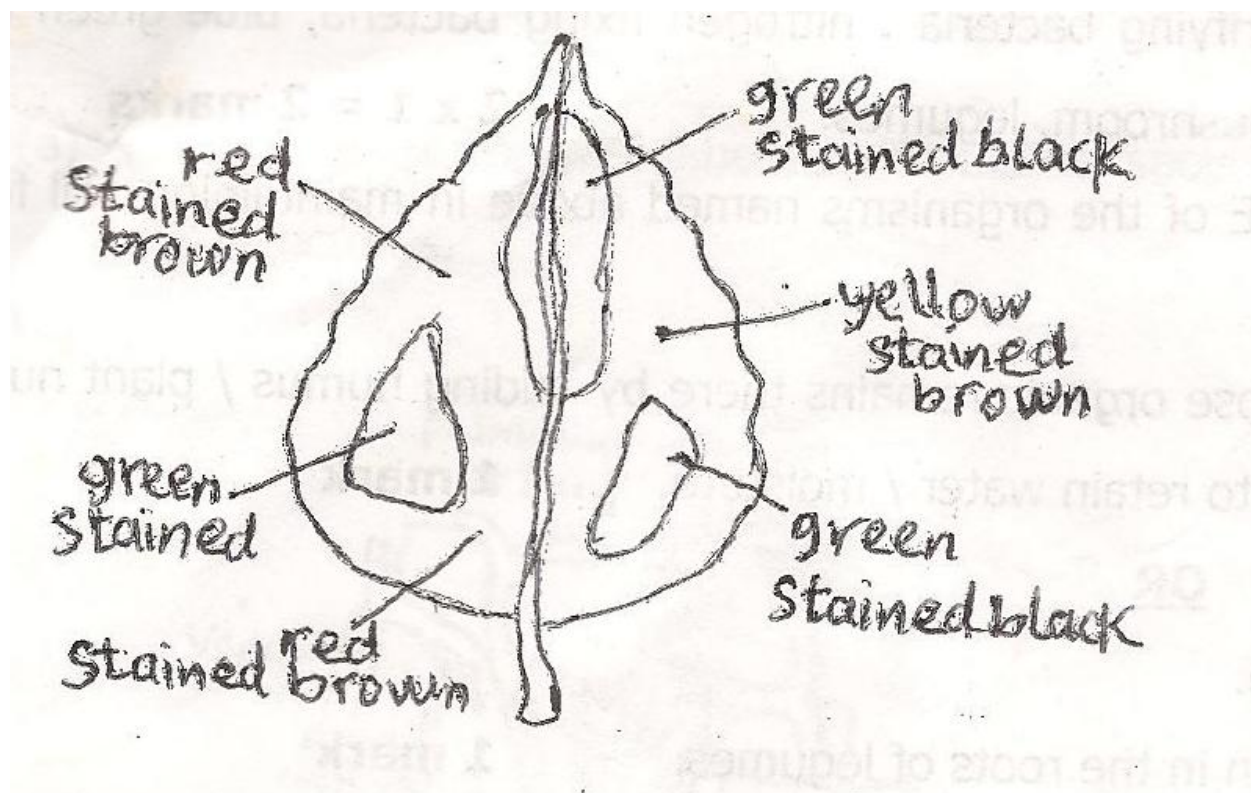 green
stained black
red
stained
brown
yellow
stained
brown
green
stained
green
stained black
red
stained brown